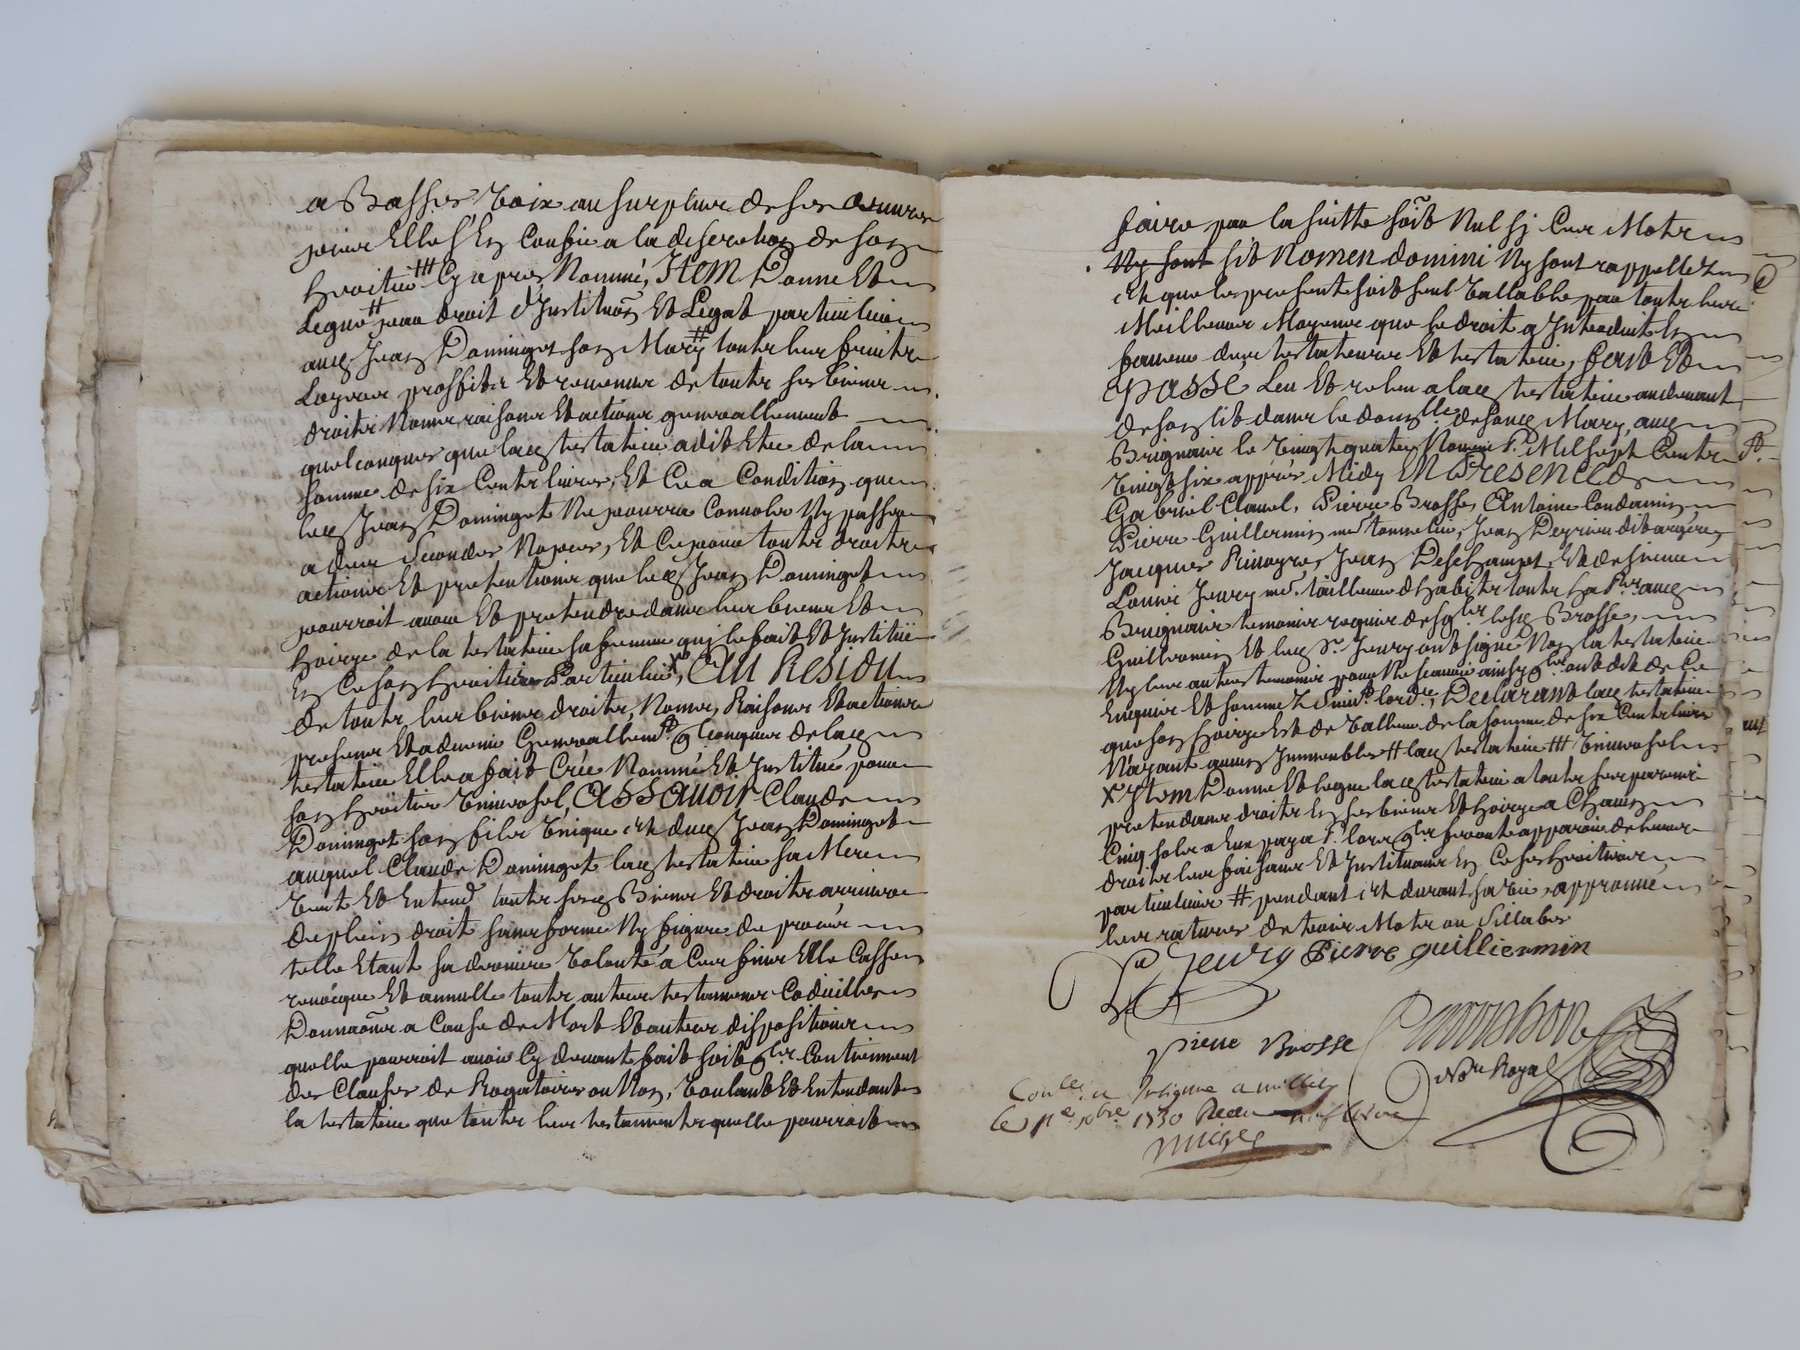 a Basses voix au surplus de ses œuvres
pies Elle s'En Confie a la discretion de son
heroitier ttt Cy apres Nommé, Item Donne Et
Legue tt par droit d'Institution Et Legat particulier
aud Jean Dominget son Mary tt touts Les fruits
Loyers proffits Et revenus de touts ses biens
droits Noms raisons Et actions generallement
quelconques que lad testatrice a dit Etre de la
somme de six Cents livres, Et Ce a Condition que
led Jean Dominget Ne pourra Convoler Ny passer
a des Secondes Nopces, Et Ce pour touts droits
actions Et pretentions que led Jean Dominget
pourroit avoir Et pretendre dans les biens Et
hoirye de la testatrice sa femme qui le fait Et Institue
En Ce son heroitier Particulier, x Au Residu
de touts, les biens droits, Noms, Raisons Et actions
presens Et advenir Generallemt qlconques de lad
testatrice Elle a fait Crée Nommé Et Institué pour
son heroitier Universel, Assavoir Claude
Dominget son fils Unique Et dud Jean Dominget
auquel Claude Dominget lad testatrice sa Mere
Veut Et Entend touts sesd Biens Et droits arriver
de plein droit sans forme Ny figure de procés
telle Etant sa derniere Volonté a Ces fins Elle Casse
revocque Et annulle touts autres testamens Codicilles
Donnaõns a Cause de Mort Et autres dispositions
quelle pourroit avoir Cy devant fait soit qls Contiennent
des Clauses de Rogatoires ou Non, Voulant Et Entendant
la testatrice que touts les testaments quelle pourroit
faire par la suitte soit Nul si Ces Mots
Ny sont sit Nomen domini Ny sont rappellez
Et que le present soit seul Vallable par touts les
Meilleurs Moyens que le droit a Introduit En
faveur des testateurs Et testatrice, fait Et
passé Leu Et releu a lad testatrice audevant
de son lit dans le domlle de sond Mary, aud
Brignais le Vingt quatre Mil sept Cents
Vingt six apprés Midy En Presence de
Gabriel Clavel, Pierre Brosse, Antoine Condamin
Pierre Guillermin me tonnelier, Jean
Jacques Jean Deschamps, Et de sieur
Louis Jeury me tailleur d'habits touts aud
Brignais temoins requis desqls lesd Brosse,
Guillermin Et led Sr Jeury ont signé Non la testatrice
Ny les autres temoins pour Ne scavoir ainsy qls ont dit de Ce
Enquis Et sommez Suivt lordce, Declarant lad testatrice
que son hoirye Est de Valleur de la somme de six Cents livres
N'ayant aucuns Immeubles tt lad testatrice ttt Universel
x Item Donne Et legue lad testatrice a touts ses parens
pretendans droits En ses biens Et hoirye a Chacun
Cinq sols a Eux payables lors qls feront apparoir de leurs
droits les faisant Et Instituant En Ce ses heroitiers
particuliers tt pendant Et durant sa vie, approuvé
les ratures de trois Mots ou Sillabes
Jeury Pierre guilliermin
pierre Brosse
Nore Royal
Conllé a a
le 1730 Receu